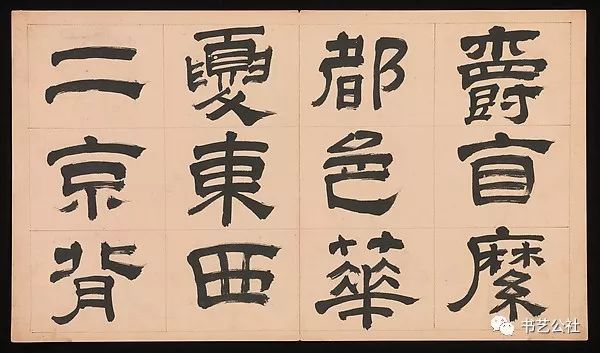 爵自縻
都邑華
夏東西
二京背
书艺公社